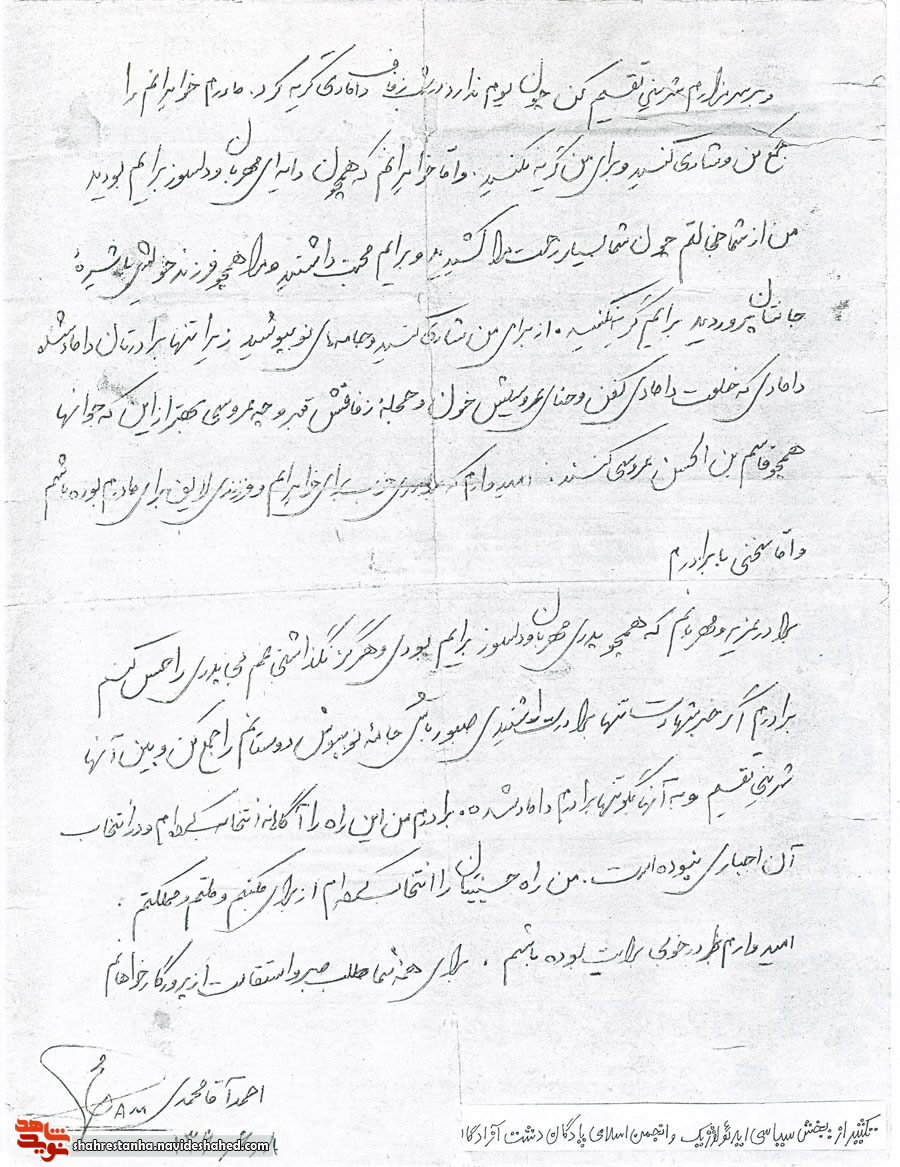 و بر سر مزارم شیرینی تقسیم کن چون یوم ندارد در شب زفاف دامادی گریه کرد. مادرم خواهرانم را
جمع کن و شادی کنید و برای من گریه نکنید. و اما خواهرانم که همچون دایه‌ای مهربان و دلسوز برایم بودید
من از شما خجالتم چون شما بسیار زحمت مرا کشیدید و برایم محبت داشتید و مرا همچو فرزند خویش با شیرهٔ
جانتان پروردید برایم گریه نکنید. از برای من شادی کنید و جامه‌های نو بپوشید زیرا تنها برادرتان داماد شده
دامادی که خلعت دامادی کفن و حنای عروسیش خون و حجلهٔ زفافش قبر و چه عروسی بهتر از این که جوانها
همچو قاسم بن الحسن عروسی کنند. امیدوارم که برادری خوب برای خواهرانم و فرزندی لایق برای مادرم بوده باشم
و اما سخنی با برادرم
برادر عزیز و مهربانم که همچو پدری مهربان و دلسوز برایم بودی و هرگز نگذاشتی غم بی پدری را حس کنم
برادرم اگر خبر شهادت تنها برادرت را شنیدی صبور باش جامهٔ نو بپوش دوستانم را جمع کن و بین آنها
شیرینی تقسیم و به آنها بگو تنها برادرم داماد شده. برادرم من این راه را آگاهانه انتخاب کرده‌ام و در انتخاب
آن اجباری نبوده است. من راه حسینیان را انتخاب کرده‌ام از برای مکتبم و ملتم و مملکتم.
امیدوارم برادر خوبی برایت بوده باشم. برای همهٔ شما طلب صبر و استقامت از پروردگار خواهانم
احمد آقامحمدی
AM
نوید شاهد
shahrestanha.navideshahed.com
تکثیر از: بخش سیاسی ایدئولوژیک و انجمن اسلامی پادگان دشت آزادگان